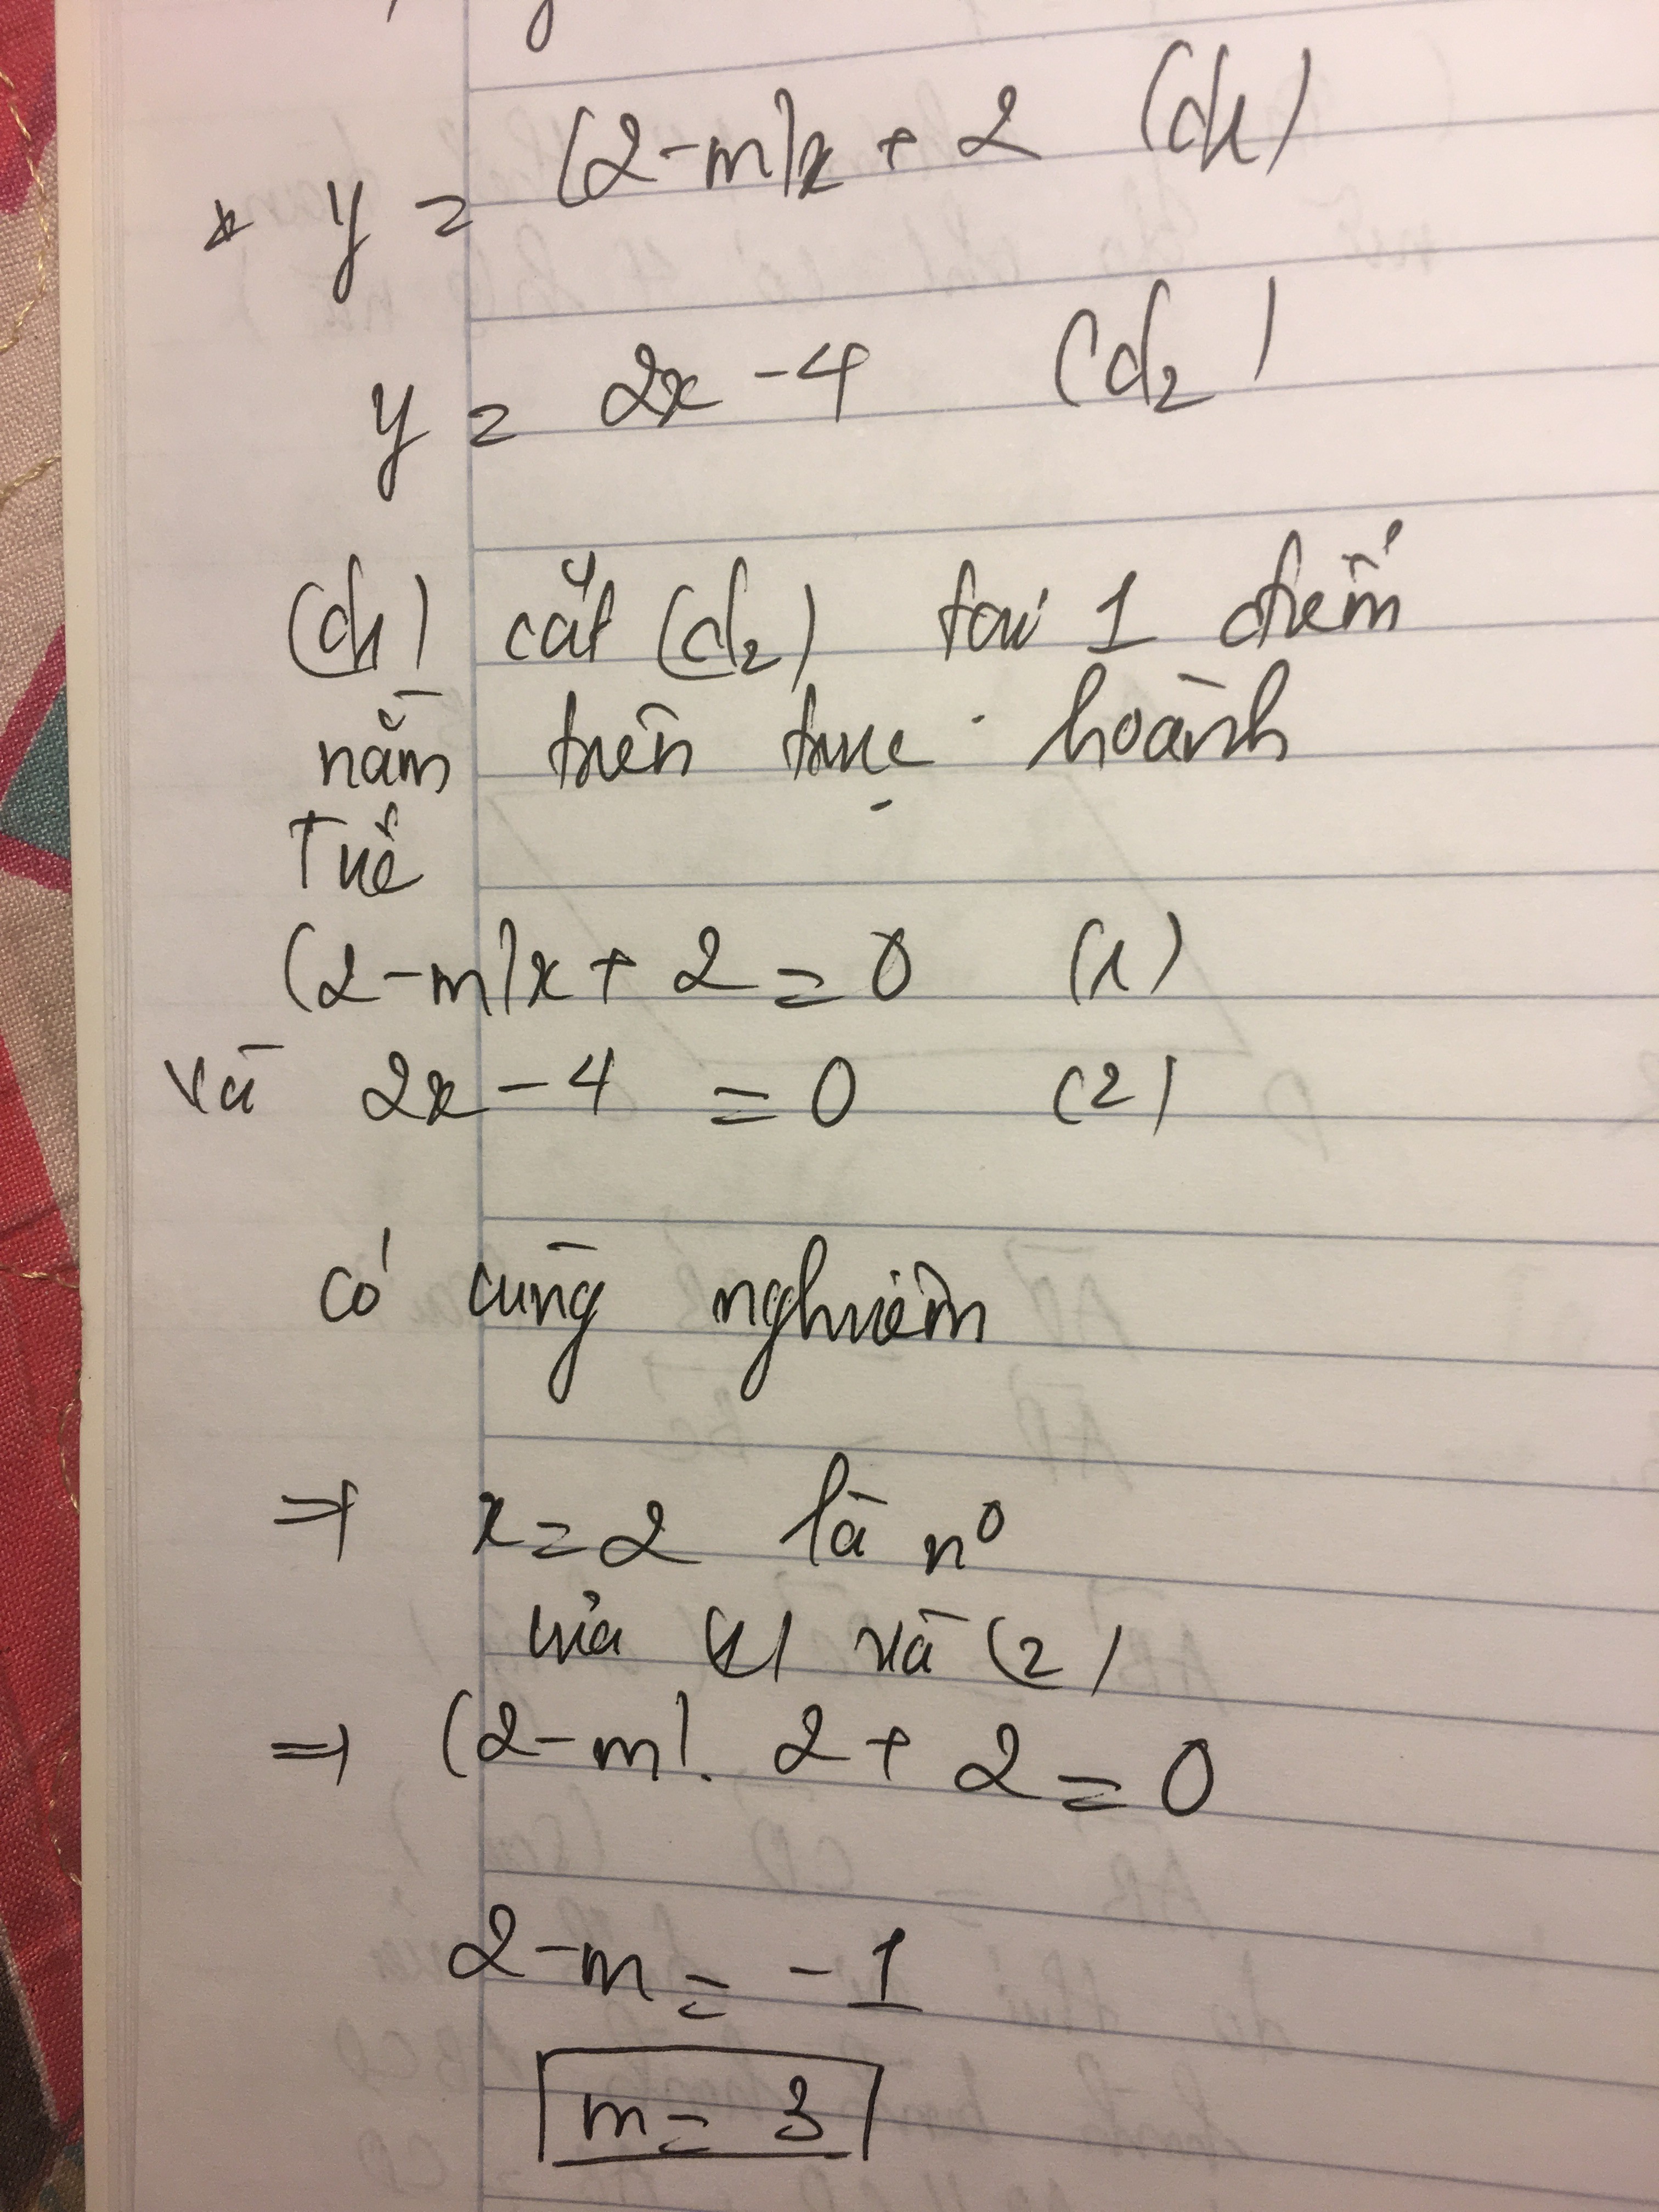 * y = (2-m)x + 2 (d1)
y = 2x - 4 (d2)
(d1) cắt (d2) tại 1 điểm
nằm trên trục hoành
Tức
(2-m)x + 2 = 0 (1)
và 2x - 4 = 0 (2)
có cùng nghiệm
=> x = 2 là n0
của (1) và (2)
=> (2-m). 2 + 2 = 0
2-m = -1
m = 3